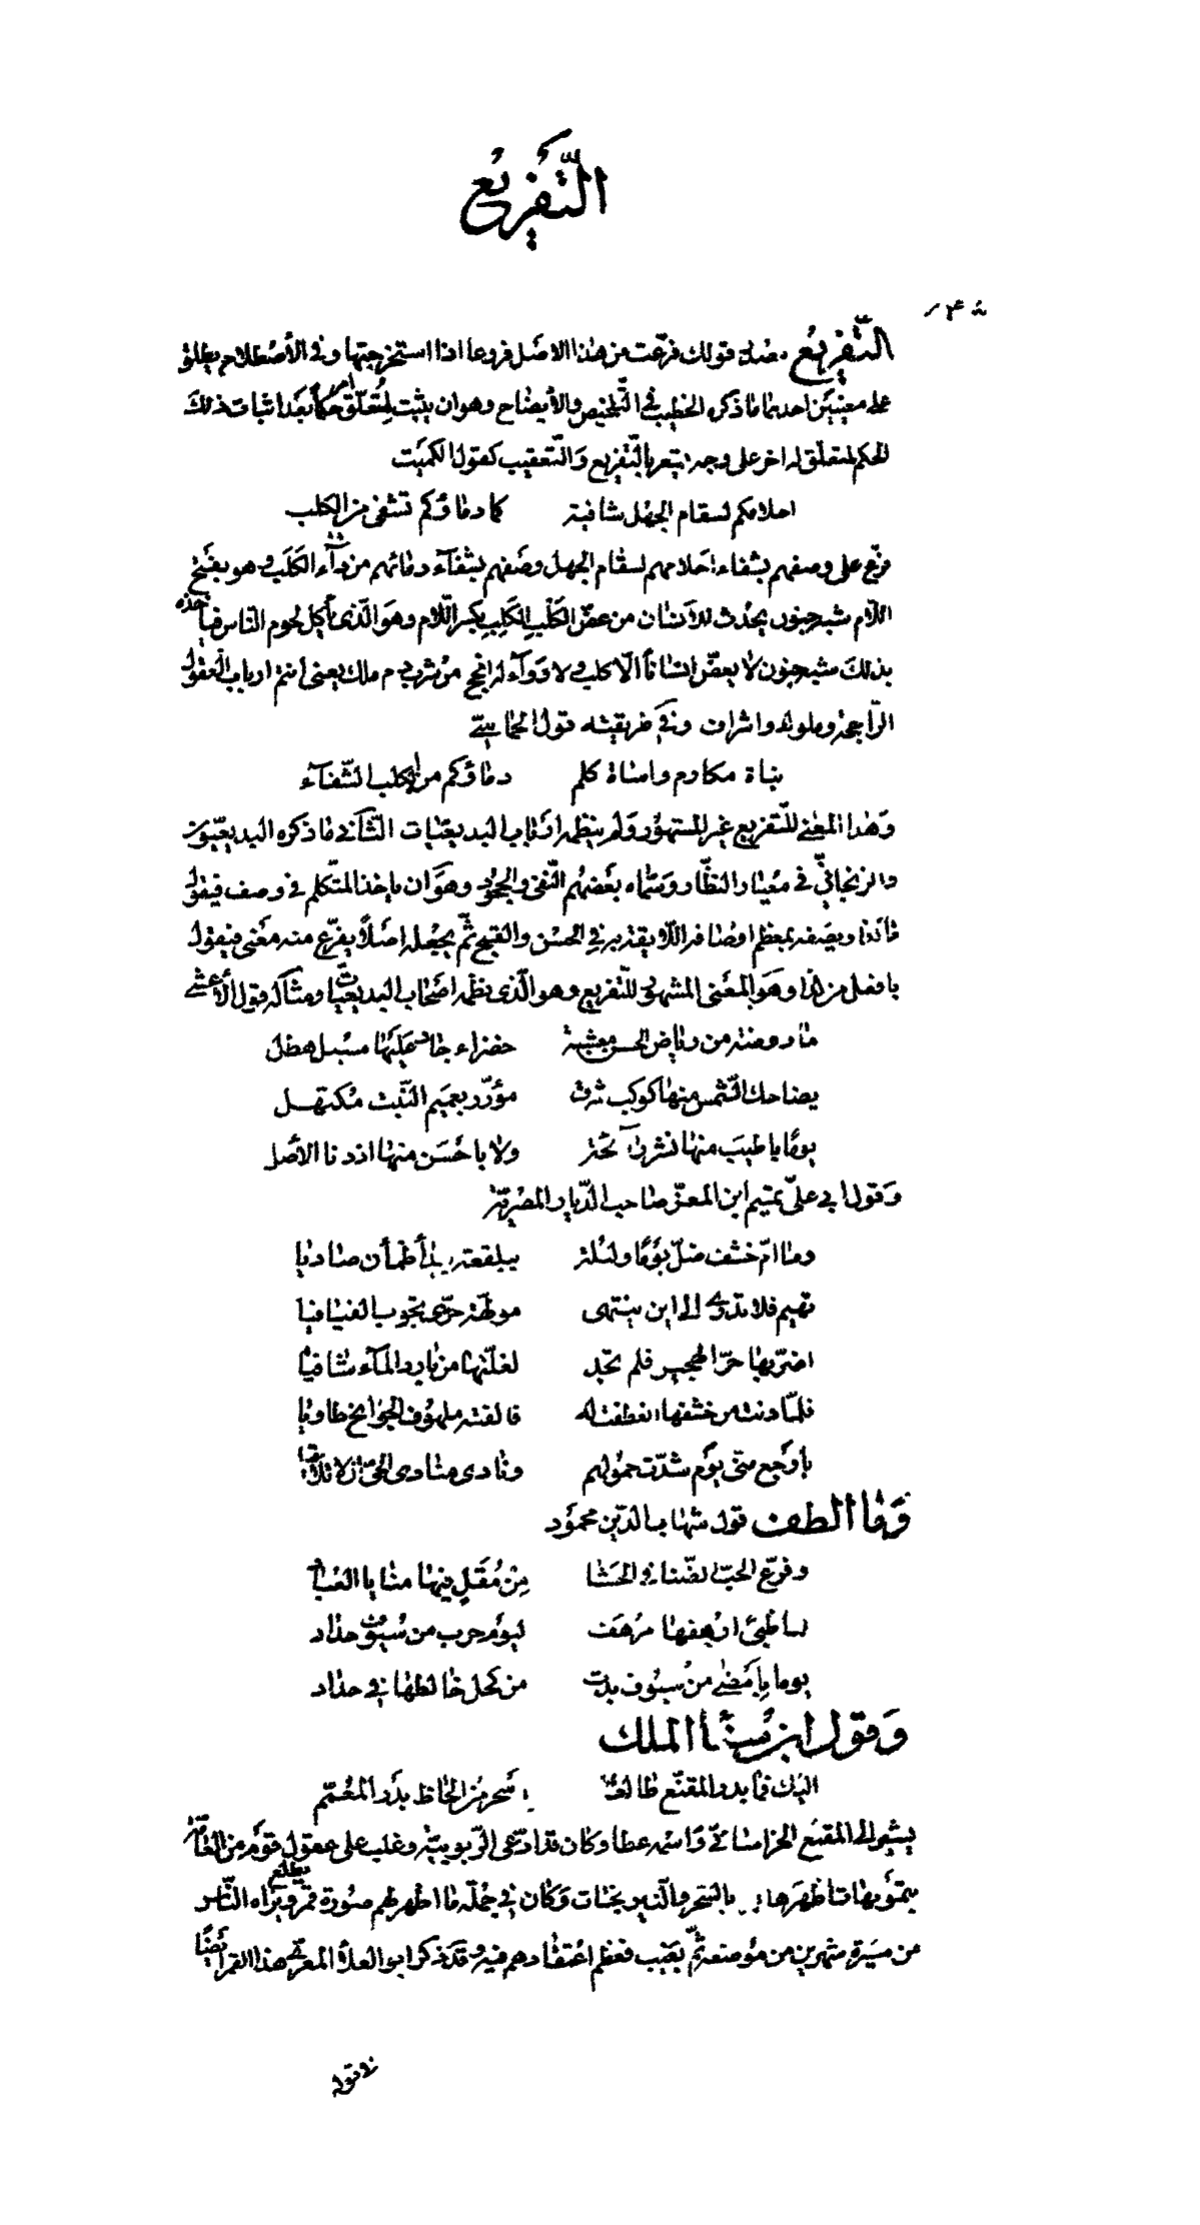 التّفريع
التّفريع مصدر قولك فرّعت من هذا الاصل فروعا اذا استخرجتها وفي الأصطلاح يطلق
على معنيين احدهما ما ذكره الخطيب في التّلخيص والأيضاح وهو ان يثبت لمتعلّق امر حكم بعد اثبات ذلك
الحكم لمتعلّق له اخر على وجه يشعر بالتّفريع والتّعقيب كقول الكميت
احلامكم لسقام الجهل شافية كما دماؤكم تشفي من الكلب
فرّع على وصفهم بشفاء احلامهم لسقام الجهل وصفهم بشفآء دمائهم من دآء الكلب وهو بفتح
اللّام شبه جنون يحدث للانسان من عضّ الكلب الكلب بكسر اللّام وهو الّذي يأكل لحوم النّاس فيأخذه
بذلك شبه جنون لا يعضّ انسانا الّا كلب ولا دوآء له انجح من شرب دم ملك يعني انتم ارباب العقول
الرّاجحة وملوك واشراف وفي طريقته قول الحماسيّ
بناة مكارم واساة كلم دماؤكم من الكلب الشّفآء
وهذا المعنى للتّفريع غير المشهور ولم ينظمه ارباب البديعيّات الثّاني ما ذكره البديعيّون
والزنجانيّ في معيار النظّار وسمّاه بعضهم النّفي والجحود وهو ان ياخذ المتكلّم في وصف فيقول
ما كذا ويصفه بمعظم اوصافه اللّايقة به في الحسن والقبح ثمّ يجعله اصلاً يفرّع منه معنى فيقول
بافضل من كذا وهو المعنى المشهور للتّفريع وهو الّذي نظمه اصحاب البديعيّات ومثاله قول الأعشى
ما روضة من رياض الحسن معشبة خضراء جاد عليها مسبل هطل
يضاحك الشّمس منها كوكب شرق مؤزّر بعميم النّبت مكتهل
يوما باطيب منها نشر رآئحة ولا باحسن منها اذ دنا الأصل
وقول ابي عليّ تميم ابن المعزّ صاحب الدّيار المصريّة
وما امّ خشف ضلّ يوما وليلة ببلقعة بيداء ظمأن صاديا
تهيم فلا تدري الى اين ينتهى مولّهة حرّى تجوب الفيافيا
اضرّ بها حرّ الهجير فلم تجد لغلّتها من بارد المآء شافيا
فلمّا دنت من خشفها انعطفت له فالفته ملهوف الجوانح طاويا
بأوجع منّي يوم شدّت حمولهم ونادى منادي الحيّ ان لا تلاقيا
وما الطف قول شهاب الدّين محمود
وفرّع الحبّ الضّنا في الحشا من مقل فيها منايا العباد
لساظبى ارهفها مرهف ليوم حرب من سيوف حداد
يوما بأمضى من سيوف بدت من كحل خالطها في حداد
وقول ابن سنأ الملك
اليك فما بدر المقنّع طالعا باسحر من الحاظ بدر المعمّم
يشير الى المقنع الخراسانيّ واسمه عطا وكان قد ادّعى الرّبوبيّة وغلب على عقول قوم من العامّة
بتمويهات اظهرها بالسّحر والنّيرنجات وكان في جملة ما اظهر لهم صورة قمر يطلع ويراه النّاس
من مسيرة شهرين من موضعه ثمّ يغيب فعظم اعتقادهم فيه وقد ذكر ابو العلآء المعرّي هذا القمر أيضًا
في قوله